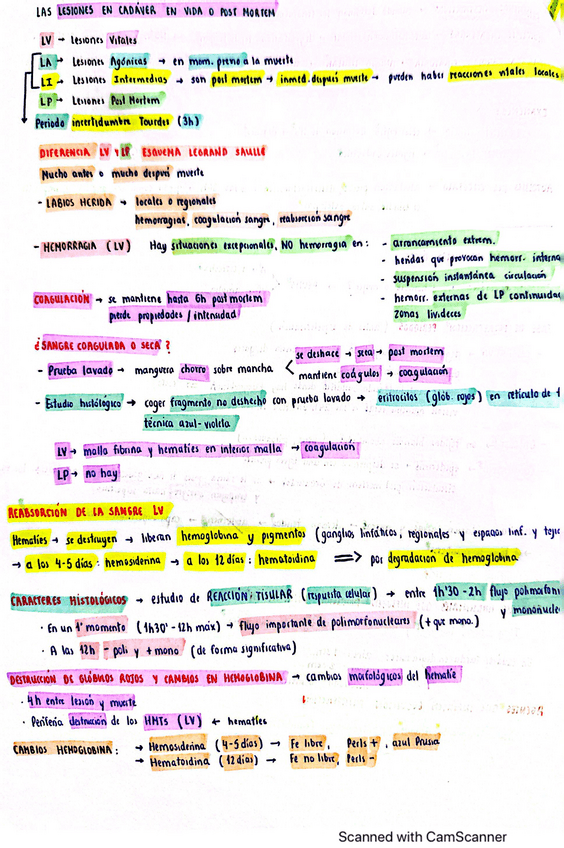 LAS LESIONES EN CADÁVER EN VIDA O POST MORTEM
LV → Lesiones Vitales
LA → Lesiones Agónicas → en mom. previo a la muerte
LI → Lesiones Intermedias → son post mortem → inmed. después muerte → pueden haber reacciones vitales locales
LP → Lesiones Post Mortem
Periodo incertidumbre Tourdes (3h)
DIFERENCIA LV y LP ESQUEMA LEGRAND SAULLE
Mucho antes o mucho después muerte
- LABIOS HERIDA → locales o regionales
hemorragias, coagulación sangre, reabsorción sangre
- HEMORRAGIA (LV) Hay situaciones excepcionales, NO hemorragia en: - arrancamiento extrem.
- heridas que provocan hemorr. interna
- suspensión instantánea circulación
- hemorr. externas de LP continuidad
zonas livideces
COAGULACIÓN → se mantiene hasta 6h post mortem
pierde propiedades / intensidad
¿SANGRE COAGULADA O SECA?
- Prueba lavado → manguera chorro sobre mancha < se deshace → seca → post mortem
mantiene coágulos → coagulación
- Estudio histológico → coger fragmento no deshecho con prueba lavado → eritrocitos (glób. rojos) en retículo de f
técnica azul-violeta
LV → malla fibrina y hematíes en interior malla → coagulación
LP → no hay
REABSORCIÓN DE LA SANGRE LV
Hematíes → se destruyen → liberan hemoglobina y pigmentos (ganglios linfáticos, regionales y espacios linf. y teji
→ a los 4-5 días: hemosiderina → a los 12 días: hematoidina ⇒ por degradación de hemoglobina
CARACTERES HISTOLÓGICOS → estudio de REACCIÓN TISULAR (respuesta celular) → entre 1h'30 - 2h flujo polimorfon
y mononucle
· En un 1º momento (1h30' - 12h máx) → flujo importante de polimorfonucleares (+ que mono.)
· A las 12h - poli y + mono (de forma significativa)
DESTRUCCIÓN DE GLÓBULOS ROJOS Y CAMBIOS EN HEMOGLOBINA → cambios morfológicos del hematíe
· 4h entre lesión y muerte
· Periferia destrucción de los HMTs (LV) ← hematíes
CAMBIOS HEMOGLOBINA: → Hemosiderina (4-5 días) → Fe libre, Perls +, azul Prusia
→ Hematoidina (12 días) → Fe no libre, Perls -
Scanned with CamScanner